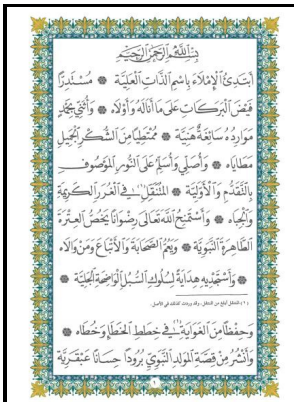 بِسْمِ اللَّهِ الرَّحْمٰنِ الرَّحِيمِ
أَبْتَدِئُ الْإِمْلَاءَ بِاسْمِ الذَّاتِ الْعَلِيَّةِ ۞ مُسْتَدِرًّا
فَيْضَ الْبَرَكَاتِ عَلَى مَا أَنَالَهُ وَأَوْلَاهُ ۞ وَأُثَنِّي بِحَمْدٍ
مَوَارِدُهُ سَائِغَةٌ هَنِيَّةٌ ۞ مُمْتَطِيًا مِنَ الشُّكْرِ الْجَمِيلِ
مَطَايَاهُ ۞ وَأُصَلِّي وَأُسَلِّمُ عَلَى النُّورِ الْمَوْصُوفِ
بِالتَّقَدُّمِ وَالْأَوَّلِيَّةِ ۞ الْمُنْتَقِلِ فِي الْغُرَرِ الْكَرِيمَةِ
وَالْجِبَاهِ ۞ وَأَسْتَمْنِحُ اللَّهَ تَعَالَى رِضْوَانًا يَخُصُّ الْعِتْرَةَ
الطَّاهِرَةَ النَّبَوِيَّةَ ۞ وَيَعُمُّ الصَّحَابَةَ وَالْأَتْبَاعَ وَمَنْ وَالَاهُ
۞ وَأَسْتَجْدِيهِ هِدَايَةً لِسُلُوكِ السُّبُلِ الْوَاضِحَةِ الْجَلِيَّةِ ۞
وَحِفْظًا مِنَ الْغَوَايَةِ فِي خِطَطِ الْخَطَإِ وَخُطَاهُ ۞
وَأَنْشُرُ مِنْ قِصَّةِ الْمَوْلِدِ النَّبَوِيِّ بُرُودًا حِسَانًا عَبْقَرِيَّةً
١